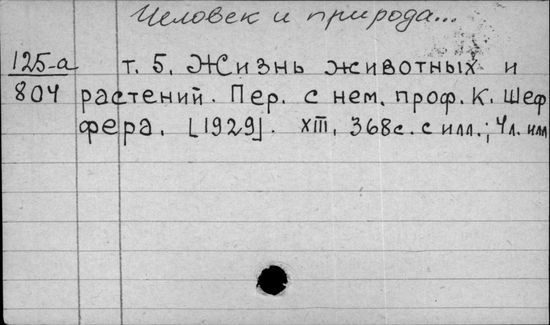 Человек и природа...
125-а т. 5. Жизнь животных и
804 растений. Пер. с нем. проф. К. Шеф
фера. [1929]. XIII, 368с. с илл.; 4л. илл